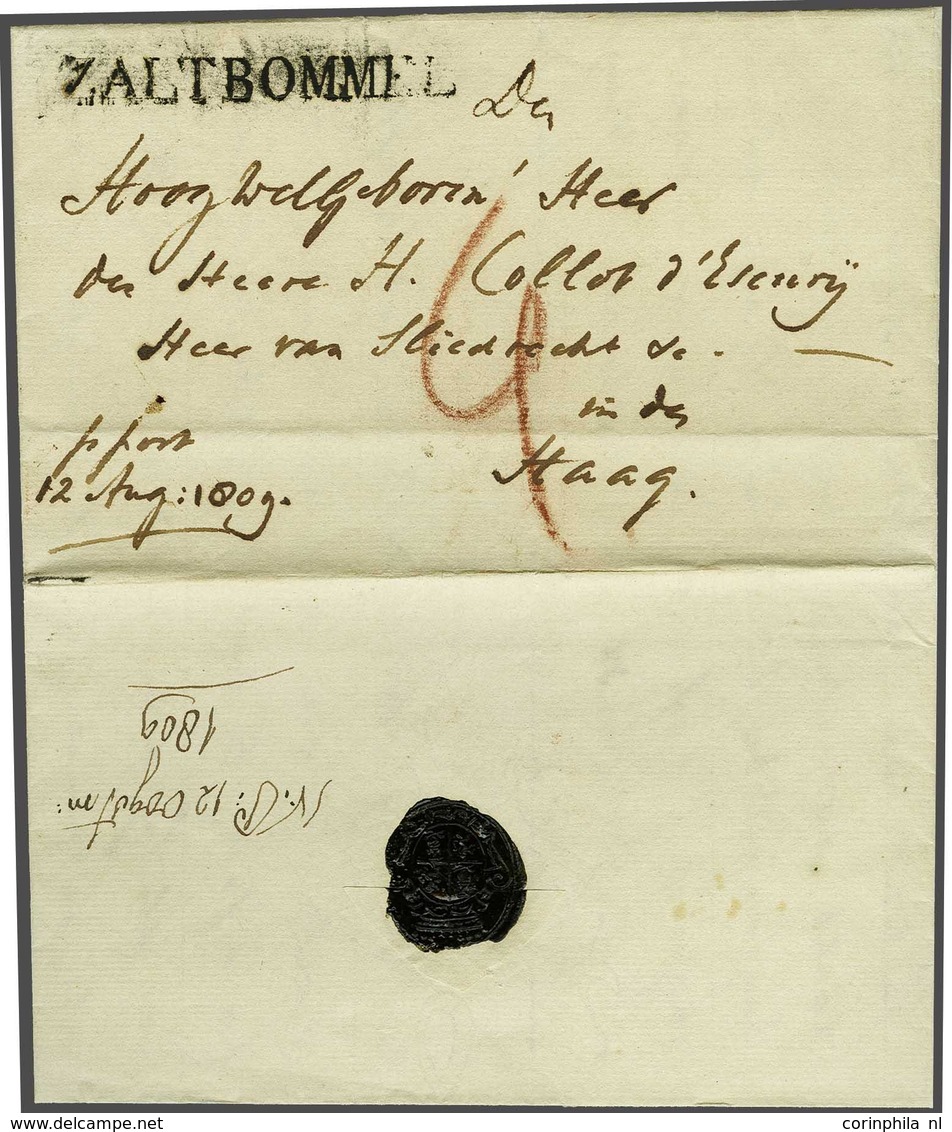 ZALTBOMMEL
Den
HoogWelgeboren Heer
den Heere H. Collot d'Escurij
Heer van Sliedrecht &c.
in den
Haag.
p post
12 Aug: 1809.
4
1809
12 Augustus:
corinphila nl